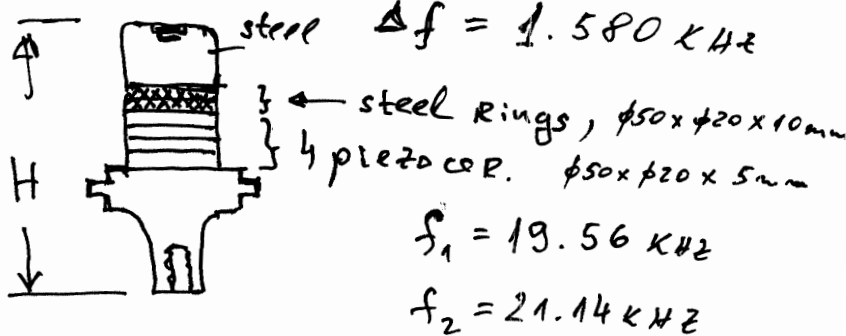 steel Δf = 1.580 KHz
} ← steel Rings, ϕ50xϕ20x10mm
} 4 piezocer. ϕ50xϕ20x5mm
H
f₁ = 19.56 KHz
f₂ = 21.14 KHz